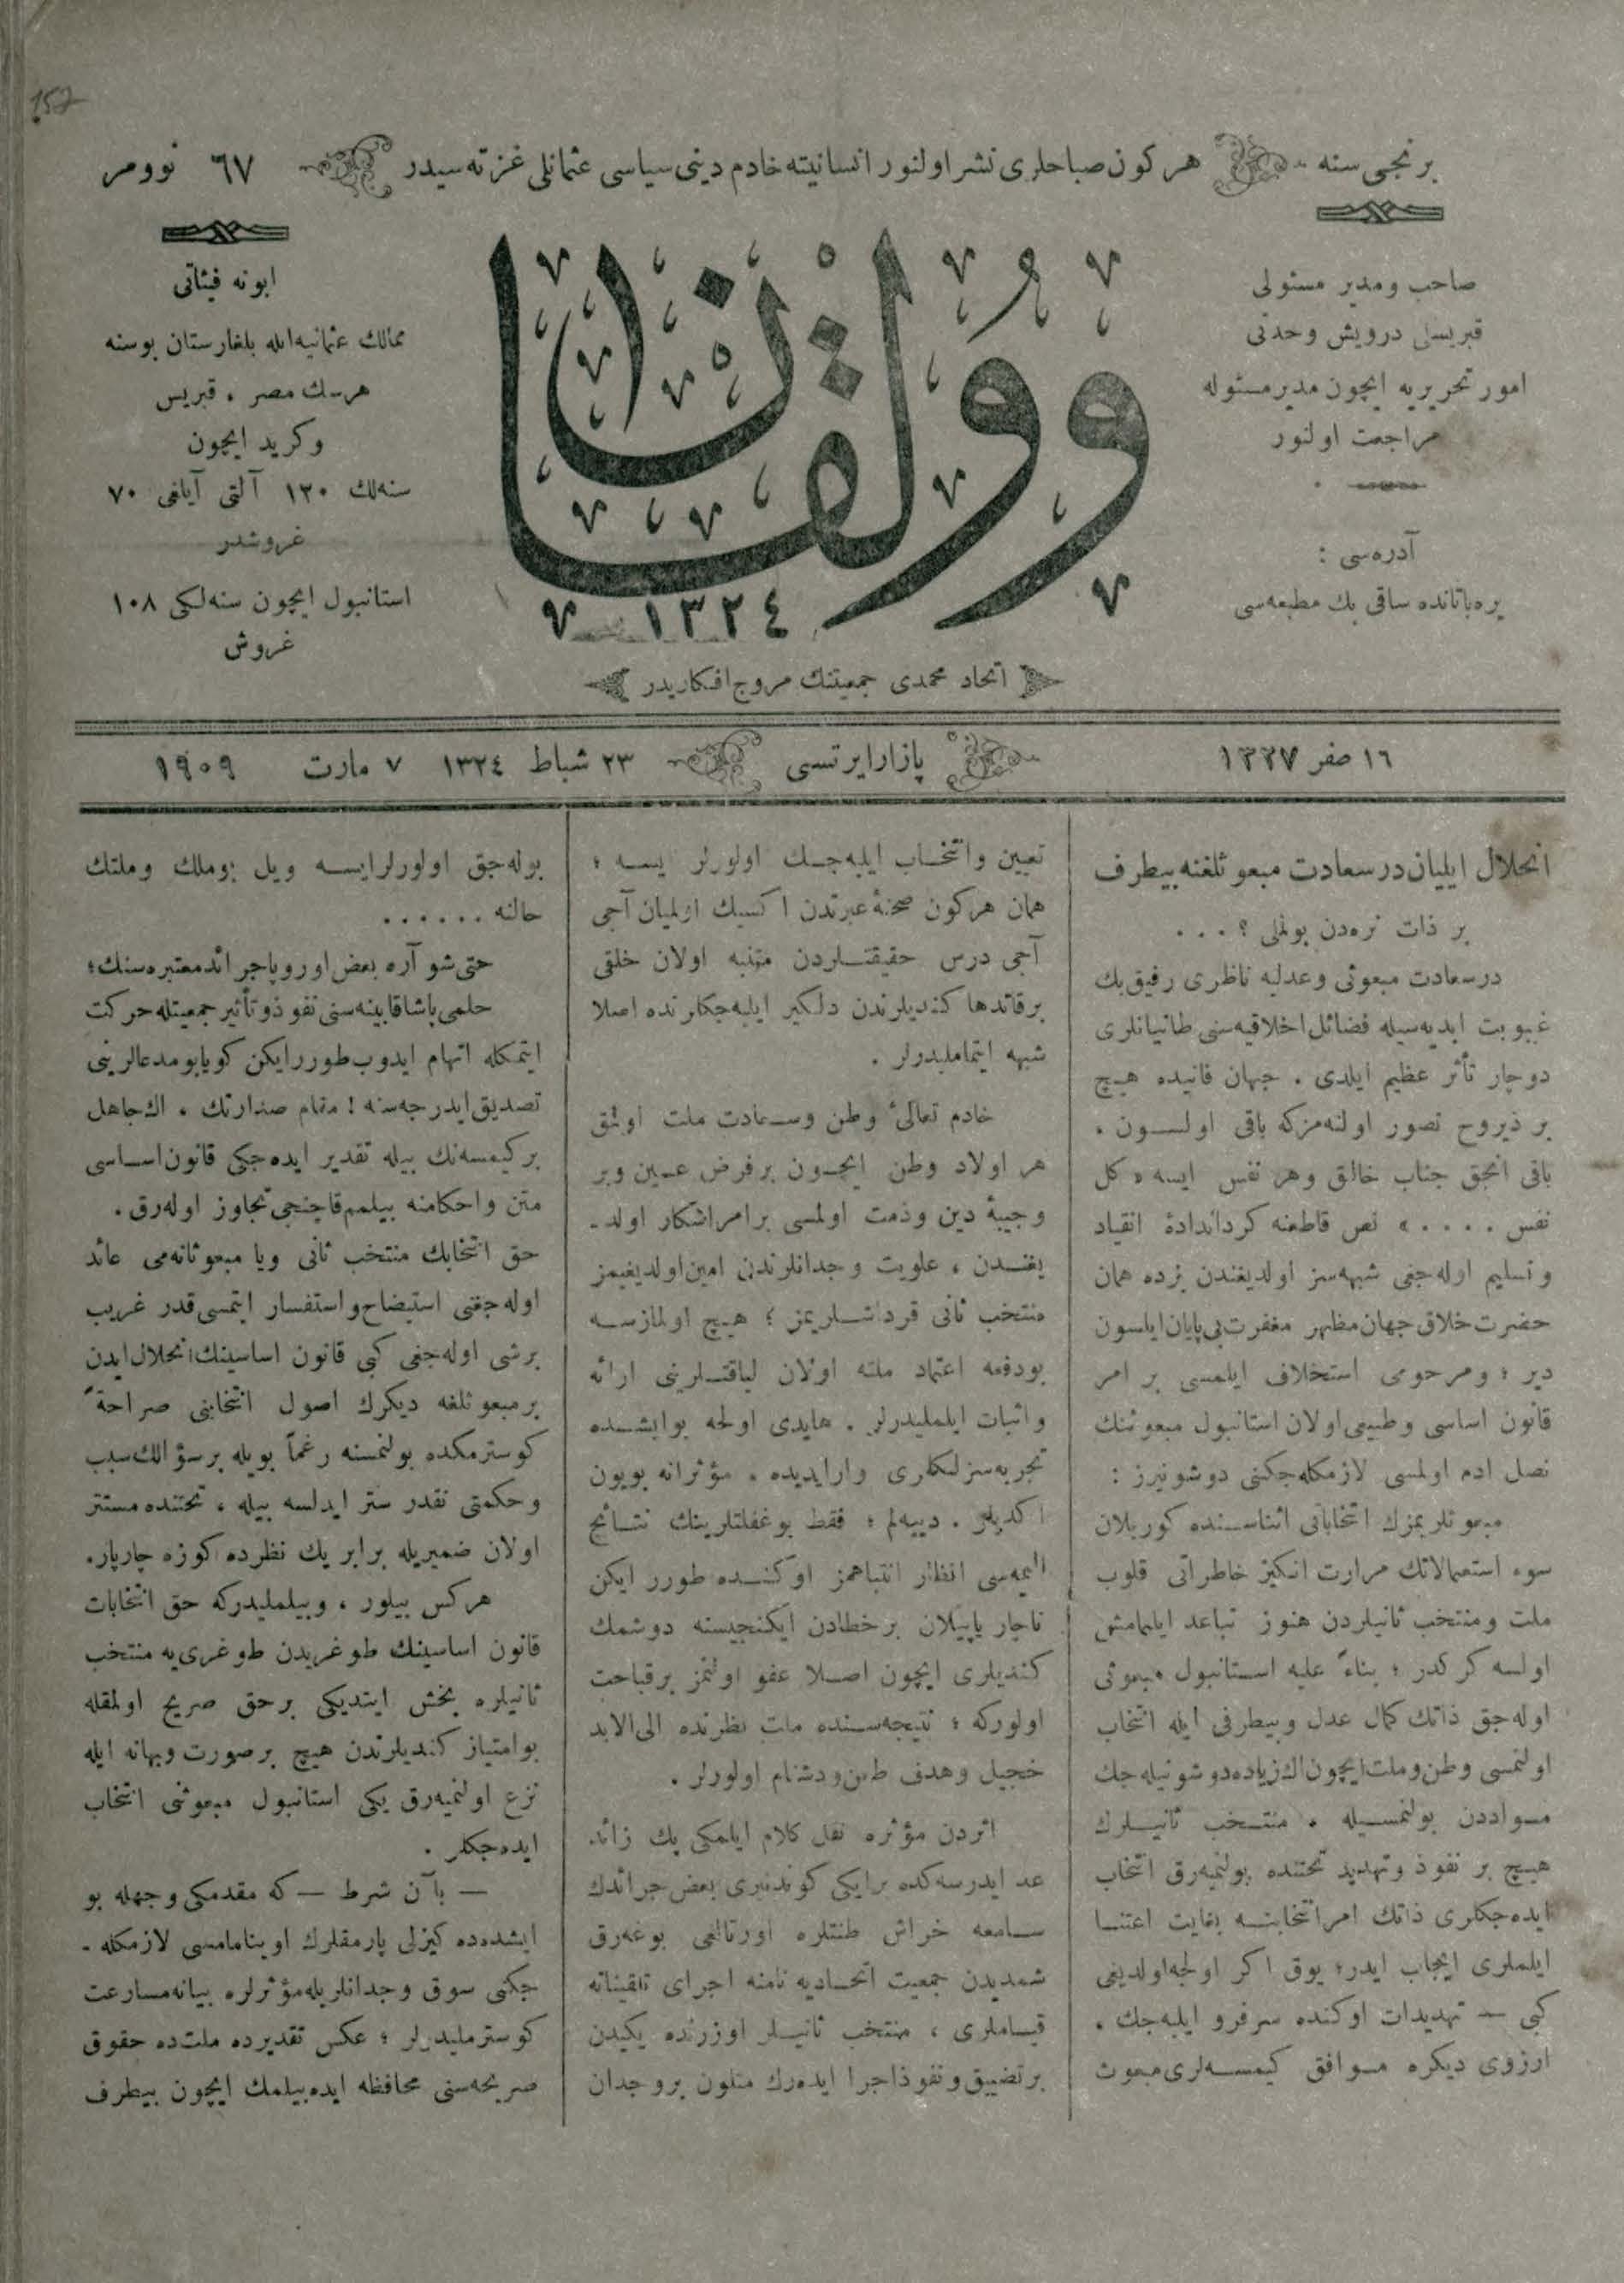 برنجی سنه
هر كون صباحلری نشر اولنور انسانیته خادم دینی سیاسی عثمانلی غزته‌سیدر
٦٧ نوومر
صاحب و مدیر مسئولی
قبریسلی درویش وحدتی
امور تحریریه ایچون مدیر مسئوله
مراجعت اولنور
آدره‌سی :
یره‌باتانده ساقی بك مطبعه‌سی
وولقان
١٣٢٤
اتحاد محمدی جمعیتنك مروج افكاریدر
ابونه فیئاتی
ممالك عثمانیه ایله بلغارستان بوسنه
هرسك مصر ، قبریس
وكرید ایچون
سنه‌لك ١٣٠ آلتی آیلغی ٧٠
غروشدر
استانبول ایچون سنه‌لكی ١٠٨
غروش
١٦ صفر ١٣٢٧
پازارایرتسی
٢٣ شباط ١٣٢٤
٧ مارت ١٩٠٩
انحلال ایلیان درسعادت مبعوثلغنه بیطرف
بر ذات نره‌دن بولملی ؟ . . .
درسعادت مبعوثی وعدلیه ناظری رفیق بك
غیبوبت ابدیه‌سیله فضائل اخلاقیه‌سنی طانیانلری
دوچار تأثر عظیم ایلدی . جهان فانیده هیچ
بر ذیروح تصور اولنه‌مزكه باقی اولسون .
باقی انجق جناب خالق وهر نفس ایسه « كل
نفس . . . . » نص قاطعنه كردانداده‌ٔ انقیاد
وتسلیم اوله‌جغی شبهه‌سز اولدیغندن بزده همان
حضرت خلاق جهان مظهر مغفرت بی‌پایان ایلسون
دیر ؛ ومرحومی استخلاف ایلمسی بر امر
قانون اساسی وطبیعی اولان استانبول مبعوثنك
نصل ادم اولمسی لازمكله‌جكنی دوشونیرز :
مبعوثلریمزك انتخاباتی اثناسنده كوریلان
سوء استعمالاتك مرارت انكیز خاطراتی قلوب
ملت ومنتخب ثانیلردن هنوز تباعد ایلمامش
اولسه كركدر ؛ بناءً علیه استانبول مبعوثی
اوله‌جق ذاتك كمال عدل وبیطرفی ایله انتخاب
اولنمسی وطن وملت ایچون الك زیاده دوشونیله‌جك
موادdن بولنمسیله ، منتخب ثانیلرك
هیچ بر نفوذ وتهدید تحتنده بولنمیه‌رق انتخاب
ایده‌جكلری ذاتك امر انتخابنه بغایت اعتنا
ایلملری ایجاب ایدر؛ یوق اكر اولجه اولدیغی
كبی — تهدیدات اوكنده سرفرو ایلیه‌جك ،
ارزوی دیكره موافق كیمسه‌لری مبعوث
تعیین وانتخاب ایلیه‌جك اولورلر ایسه ؛
همان هركون صحنه‌ٔ عبرتدن اكسیك اولمیان آجی
آجی درس حقیقتلردن متنبه اولان خلقی
برقاتدها كندیلرندن دلكیر ایلیه‌جكلرنده اصلا
شبهه ایتماملیدرلر .
خادم تعالیٔ وطن وسعادت ملت اولمق
هر اولاد وطن ایچون بر فرض عین وبر
وجیبه‌ٔ دین وذمت اولمسی بر امر اشكار اولد-
یغندن ، علویت وجدانلرندن امین اولدیغیمز
منتخب ثانی قرداشلریمز ؛ هیچ اولمازسه
بودفعه اعتماد ملته اولان لیاقتلرینی ارائه
واثبات ایلملیدرلر . هایدی اولجه بوایشده
تجربه‌سزلكلری واراییدیده ، مؤثرانه بویون
اكدیلر . دییه‌لم ؛ فقط بوغفلتلرینك نتائج
الیمه‌سی انظار انتباهمز اوكنده طورر ایكن
ناچار یاپیلان بر خطادن ایكنجیسنه دوشمك
كندیلری ایچون اصلا عفو اولنمز برقباحت
اولوركه ؛ نتیجه‌سنده ملت نظرنده الی‌الابد
خجیل وهدف طعن ودشنام اولورلر .
اثردن مؤثره نقل كلام ایلمكی پك زائد
عد ایدرسه‌كده برایكی كوندنبری بعض جرائدك
سامعه خراش طنتلره اورتالغی بوغه‌رق
شمدیدن جمعیت اتحادیه نامنه اجرای تلقیناته
قیاملری ، منتخب ثانیلر اوزرنده یكیدن
برتضییق ونفوذ اجرا ایده‌رك متلون بروجدان
بوله‌جق اولورلرایسه ویل بوملك وملتك
حالنه . . . . . .
حتی شو آره بعض اوروپا جرائد معتبره‌سنك؛
حلمی پاشا قابینه‌سنی نفوذ وتأثیر جمعیتله حركت
ایتمكله اتهام ایدوب طوررایكن كویا بو مدعالرینی
تصدیق ایدرجه‌سنه ! مقام صدارتك ، الك جاهل
بركیمسه‌نك بیله تقدیر ایده‌جكی قانون اساسی
متن واحكامنه بیلمم قاچنجی تجاوز اوله‌رق .
حق انتخابك منتخب ثانی ویا مبعوثانه‌می عائد
اوله‌جغنی استیضاح واستفسار ایتمسی قدر غریب
برشی اوله‌جغی كبی قانون اساسینك انحلال ایدن
بر مبعوثلغه دیكرك اصول انتخابنی صراحةً
كوسترمكده بولنمسنه رغماً بویله برسؤالك سبب
وحكمتی نقدر ستر ایدلسه بیله ، تحتنده مستتر
اولان ضمیریله برابر پك نظرده كوزه چارپار.
هركس بیلور ، وبیلملیدركه حق انتخابات
قانون اساسینك طوغریدن طوغری‌یه منتخب
ثانیلره بخش ایتدیكی برحق صریح اولمقله
بوامتیاز كندیلرندن هیچ برصورت وبهانه ایله
نزع اولنمیه‌رق یكی استانبول مبعوثنی انتخاب
ایده‌جكلر .
— بآن شرط — كه مقدمكی وجهله بو
ایشده‌ده كیزلی پارمقلرك اوینامامسی لازمكله -
جكنی سوق وجدانلریله مؤثرلره بیانه مسارعت
كوسترملیدرلر ؛ عكس تقدیرده ملت‌ده حقوق
صریحه‌سنی محافظه ایده‌بیلمك ایچون بیطرف